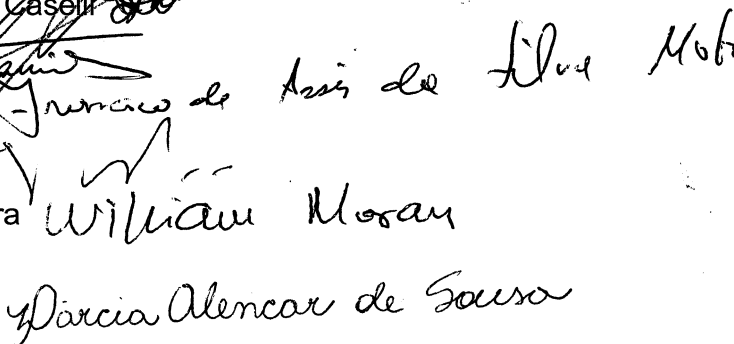 Caselli
Francisco de Assis da Silva Mot
ra William Moran
Márcia Alencar de Sousa